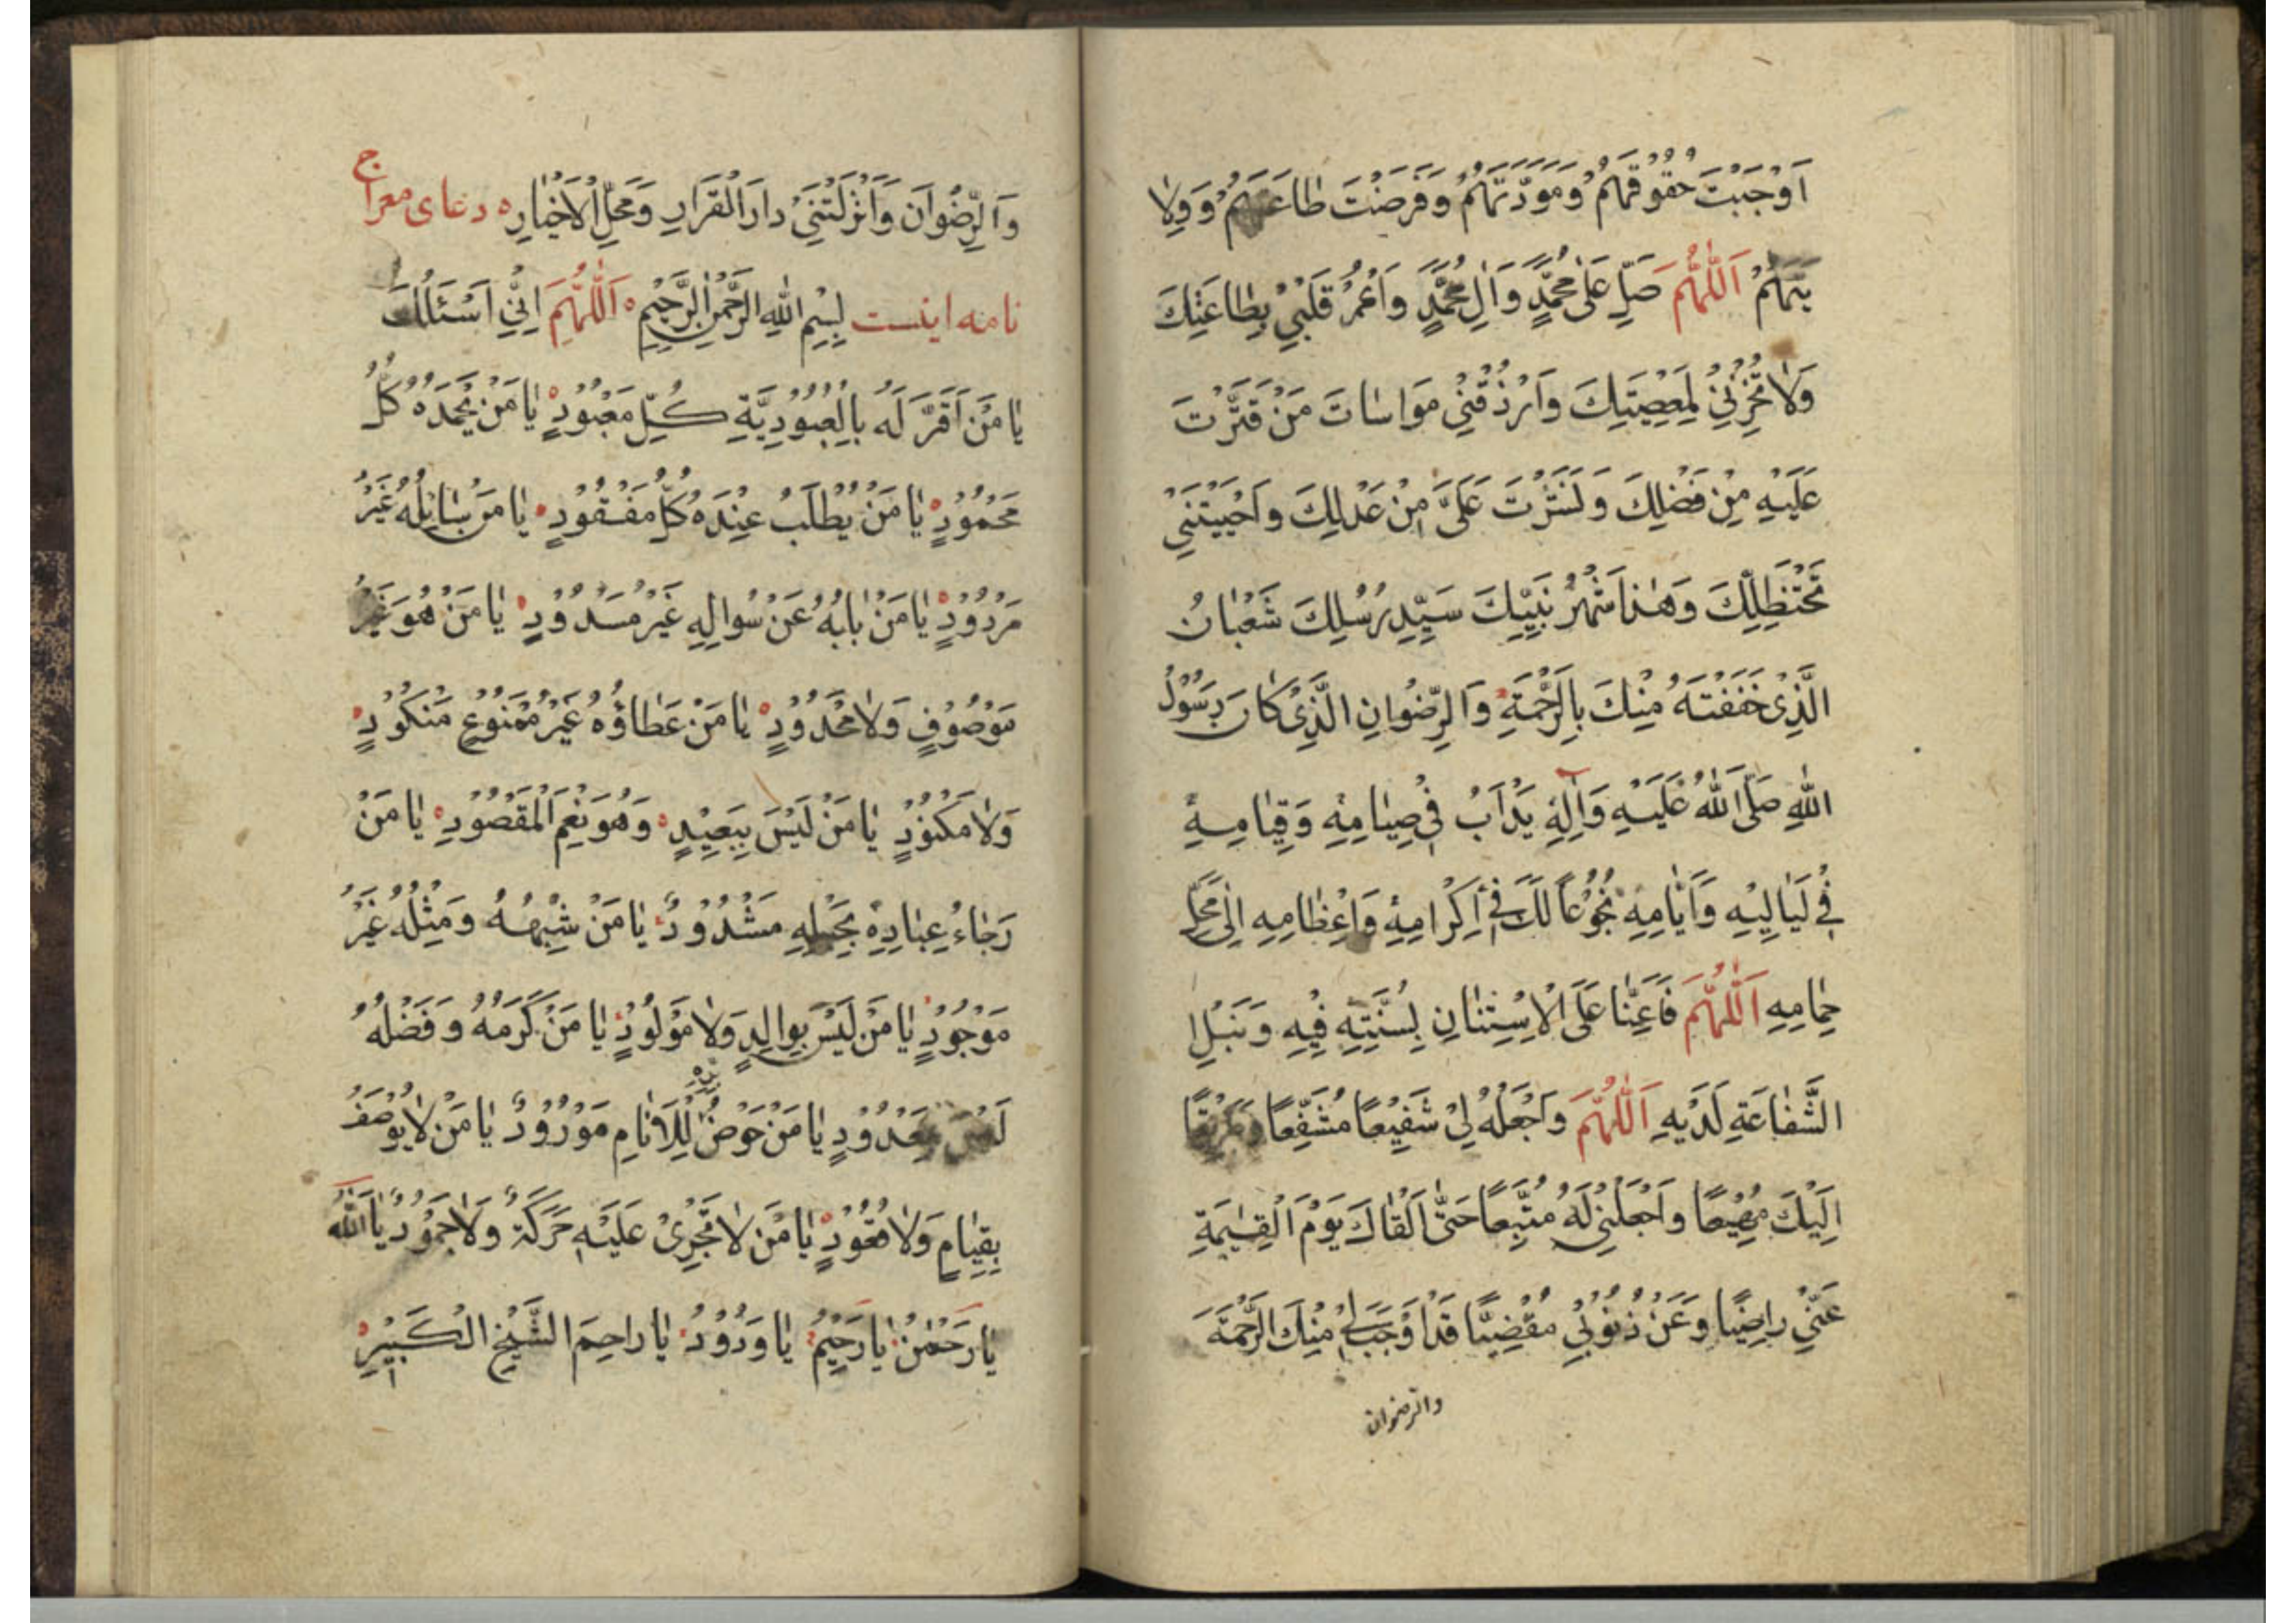 اَوْجَبْتَ حُقُوقَهُمْ وَمَوَدَّتَهُمْ وَفَرَضْتَ طاعَتَهُمْ وَوِلا
يَتَهُمْ اَللّٰهُمَّ صَلِّ عَلىٰ مُحَمَّدٍ وَآلِ مُحَمَّدٍ وَاعْمُرْ قَلْبِي بِطاعَتِكَ
وَلا تُخْزِنِي لِمَعْصِيَتِكَ وَارْزُقْنِي مَواسٰاتَ مَنْ قَتَّرْتَ
عَلَيْهِ مِنْ فَضْلِكَ وَنَشَرْتَ عَلَيَّ مِنْ عَدْلِكَ وَاَحْيَيْتَنِي
تَحْتَ ظِلِّكَ وَهٰذا شَهْرُ نَبِيِّكَ سَيِّدِ رُسُلِكَ شَعْبٰانُ
الَّذِي حَفَفْتَهُ مِنْكَ بِالرَّحْمَةِ وَالرِّضْوانِ الَّذِي كٰانَ رَسُولُ
اللهِ صَلَّى اللهُ عَلَيْهِ وَآلِهِ يَدْاَبُ فِي صِيٰامِهِ وَقِيٰامِهِ
فِي لَيٰالِيهِ وَاَيّٰامِهِ بُخُوعاً لَكَ فِي اِكْرامِهِ وَاِعْظٰامِهِ اِلىٰ مَحَلِّ
حِمٰامِهِ اَللّٰهُمَّ فَاَعِنّٰا عَلَى الْاِسْتِنٰانِ بِسُنَّتِهِ فِيهِ وَنَيْلِ
الشَّفٰاعَةِ لَدَيْهِ اَللّٰهُمَّ وَاجْعَلْهُ لِي شَفِيعًا مُشَفَّعًا وَطَرِيقًا
اِلَيْكَ مَهِيعًا وَاجْعَلْنِي لَهُ مُتَّبِعًا حَتّٰى اَلْقٰاكَ يَوْمَ الْقِيٰمَةِ
عَنِّي راضِيًا وَعَنْ ذُنُوبِي مُغْضِيًا قَدْ اَوْجَبْتَ لِي مِنْكَ الرَّحْمَةَ
والرضوان
وَالرِّضْوَانَ وَاَنْزَلْتَنِي دارَ الْقَرَارِ وَمَحَلَّ الْاَخْيٰارِ دعای معراج
نامه اینست بِسْمِ اللهِ الرَّحْمٰنِ الرَّحِيمِ اَللّٰهُمَّ اِنِّي اَسْئَلُكَ
يٰا مَنْ اَقَرَّ لَهُ بِالْعُبُودِيَّةِ كُلُّ مَعْبُودٍ يٰا مَنْ يَحْمَدُهُ كُلُّ
مَحْمُودٍ يٰا مَنْ يُطْلَبُ عِنْدَهُ كُلُّ مَفْقُودٍ يٰا مَنْ سٰائِلُهُ غَيْرُ
مَرْدُودٍ يٰا مَنْ بٰابُهُ عَنْ سُوالِهِ غَيْرُ مَسْدُودٍ يٰا مَنْ هُوَ غَيْرُ
مَوْصُوفٍ وَلاٰ مَحْدُودٍ يٰا مَنْ عَطٰاؤُهُ غَيْرُ مَمْنُوعٍ مَنْكُودٍ
وَلاٰ مَكْنُودٍ يٰا مَنْ لَيْسَ بِبَعِيدٍ وَهُوَ نِعْمَ الْمَقْصُودِ يٰا مَنْ
رَجٰاءُ عِبٰادِهِ بِحَبْلِهِ مَشْدُودٌ يٰا مَنْ شِبْهُهُ وَمِثْلُهُ غَيْرُ
مَوْجُودٍ يٰا مَنْ لَيْسَ بِوالِدٍ وَلاٰ مَوْلُودٍ يٰا مَنْ كَرَمُهُ وَفَضْلُهُ
لَيْسَ بِمَعْدُودٍ يٰا مَنْ حَوْضُ لِلْاَنٰامِ مَوْرُودٌ يٰا مَنْ لاٰ يُوصَفُ
بِقِيٰامٍ وَلاٰ قُعُودٍ يٰا مَنْ لاٰ تَجْرِيْ عَلَيْهِ حَرَكَةٌ وَلاٰ جُمُودٌ يٰا اَللهُ
يٰا رَحْمٰنُ يٰا رَحِيمُ يٰا وَدُودُ يٰا راحِمَ الشَّيْخِ الْكَبِيْرِ